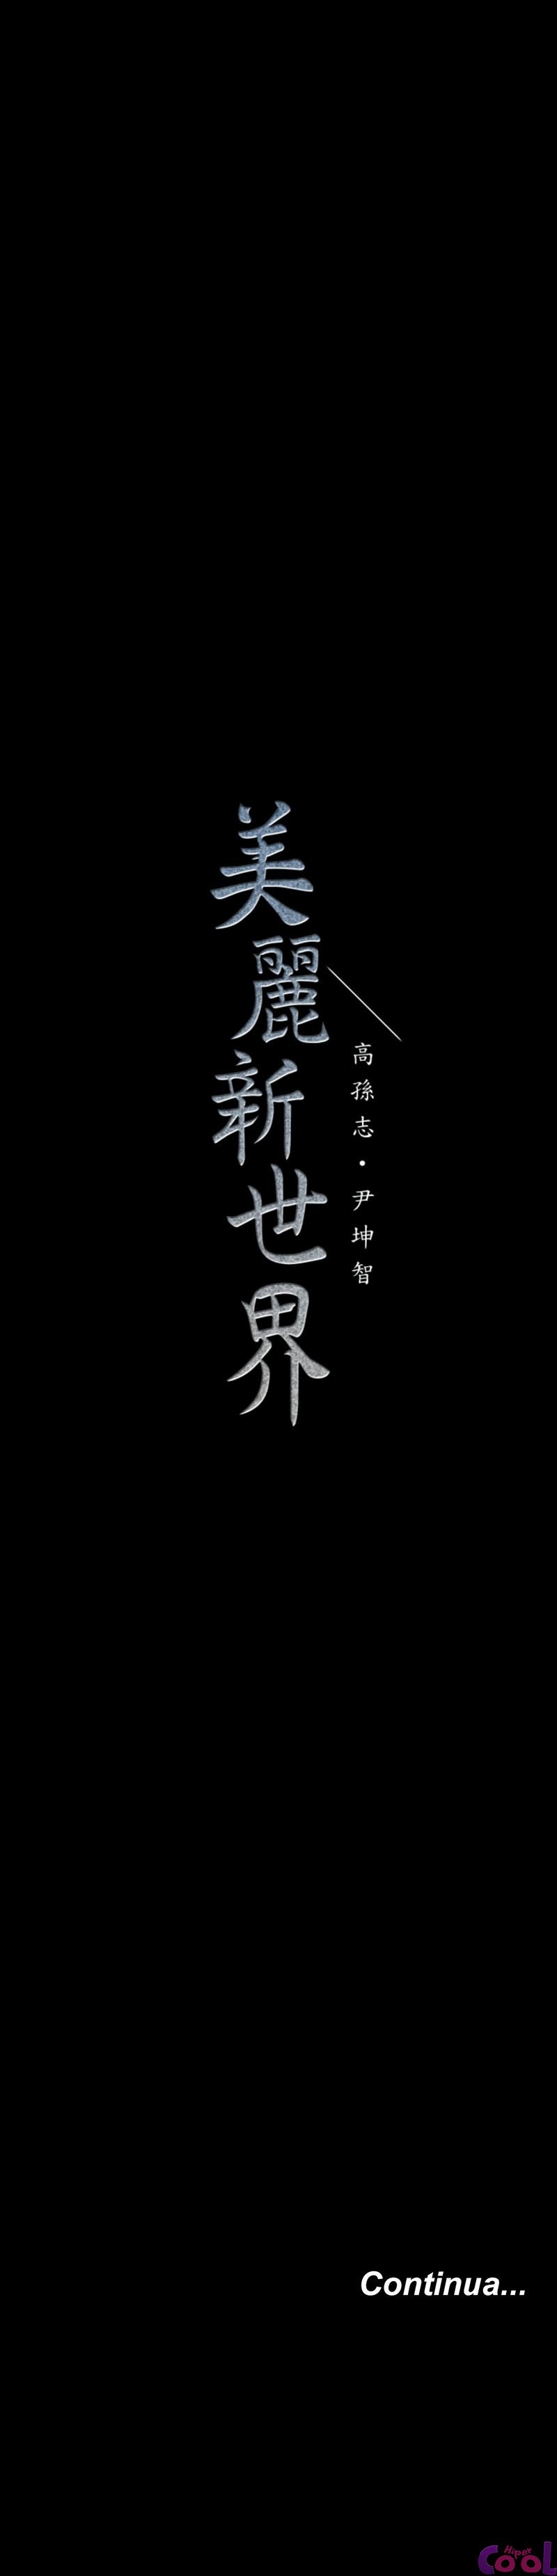 美麗新世界
高孫志·尹坤智
Continua...
Hiper
CooL